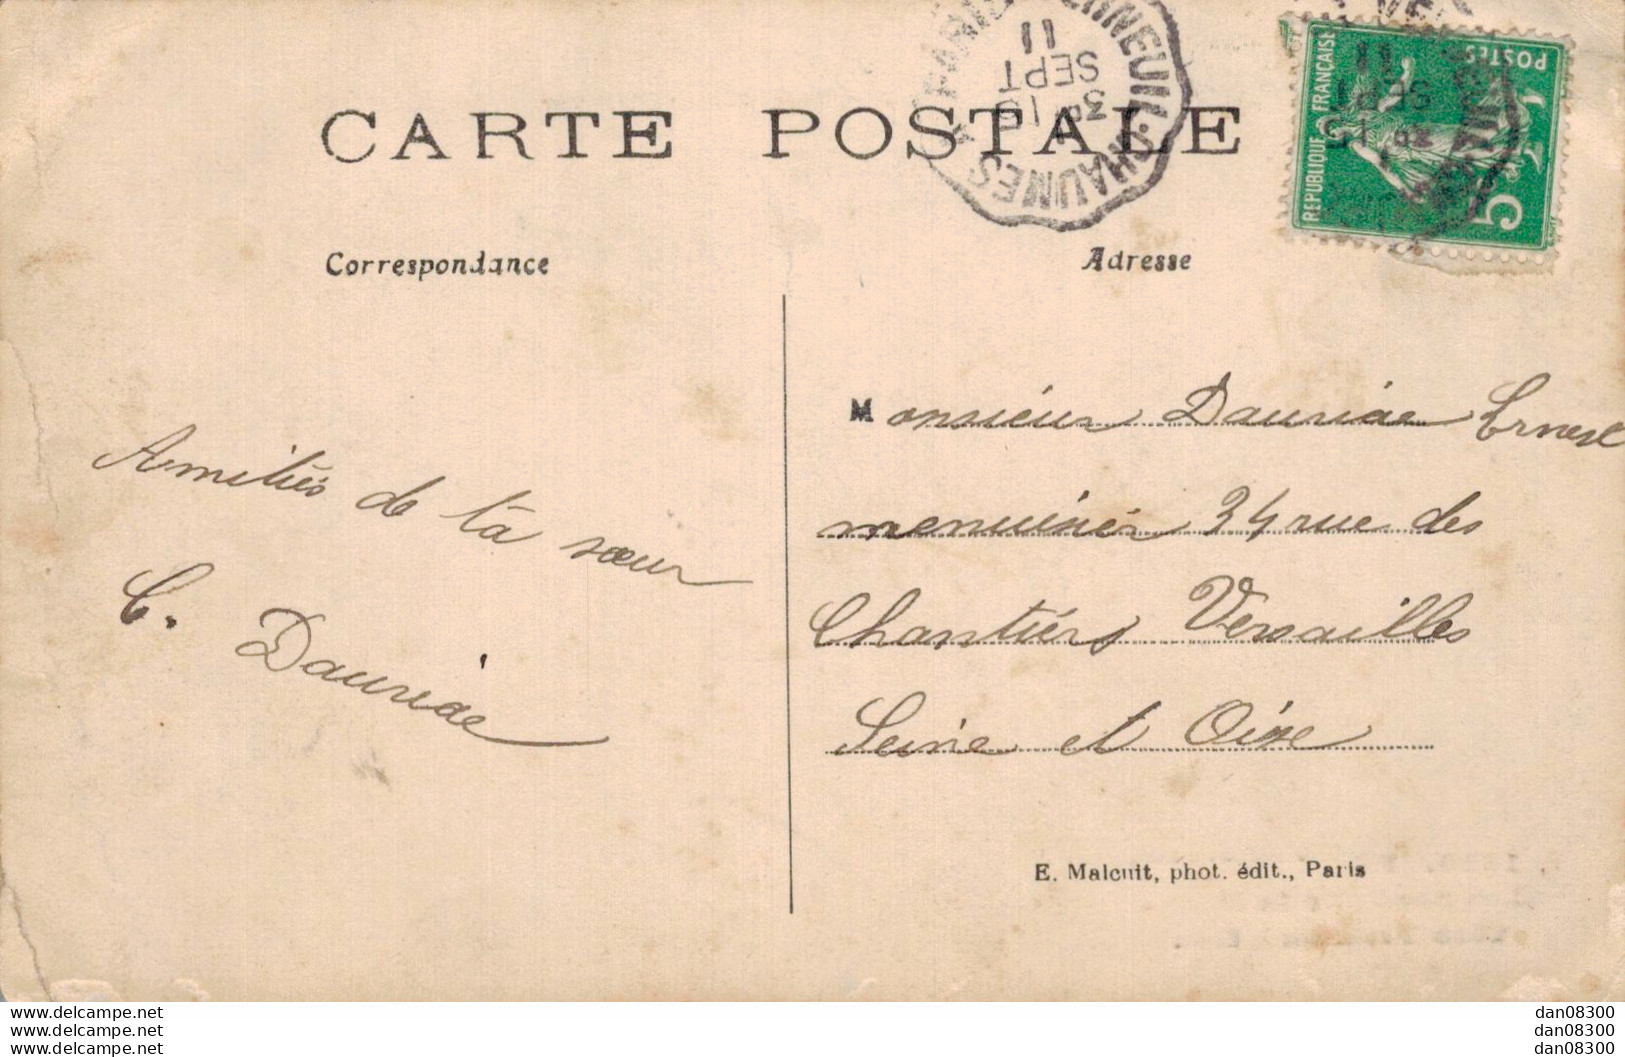 CARTE POSTALE
Correspondance
Adresse
3E 13
SEPT
11
RÉPUBLIQUE FRANÇAISE
POSTES
5
Amitiés de ta sœur
C. Dauriac
Monsieur Dauriac Ernest
menuisier 34 rue des
Chantiers Versailles
Seine et Oise
E. Malcuit, phot. édit., Paris
www.delcampe.net
www.delcampe.net
www.delcampe.net
dan08300
dan08300
dan08300